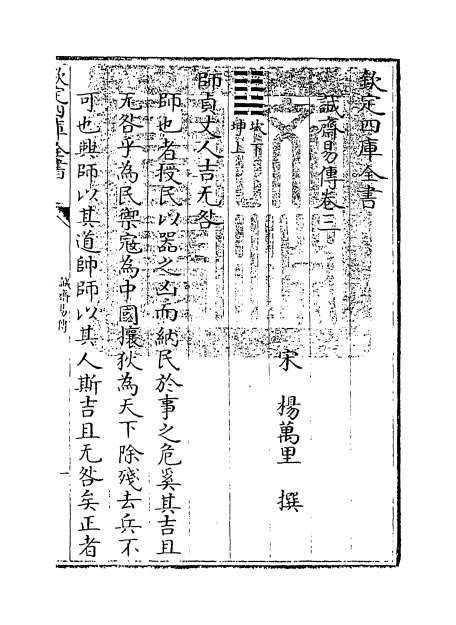 欽定四庫全書
誠齋易傳卷三
宋 楊萬里 撰
坎下
坤上
師貞丈人吉无咎
師也者授民以器之凶而納民於事之危奚其吉且
无咎乎為民禦寇為中國攘狄為天下除殘去兵不
可也興師以其道師師以其人斯吉且无咎矣正者
欽定四庫全書
誠齋易傳
一